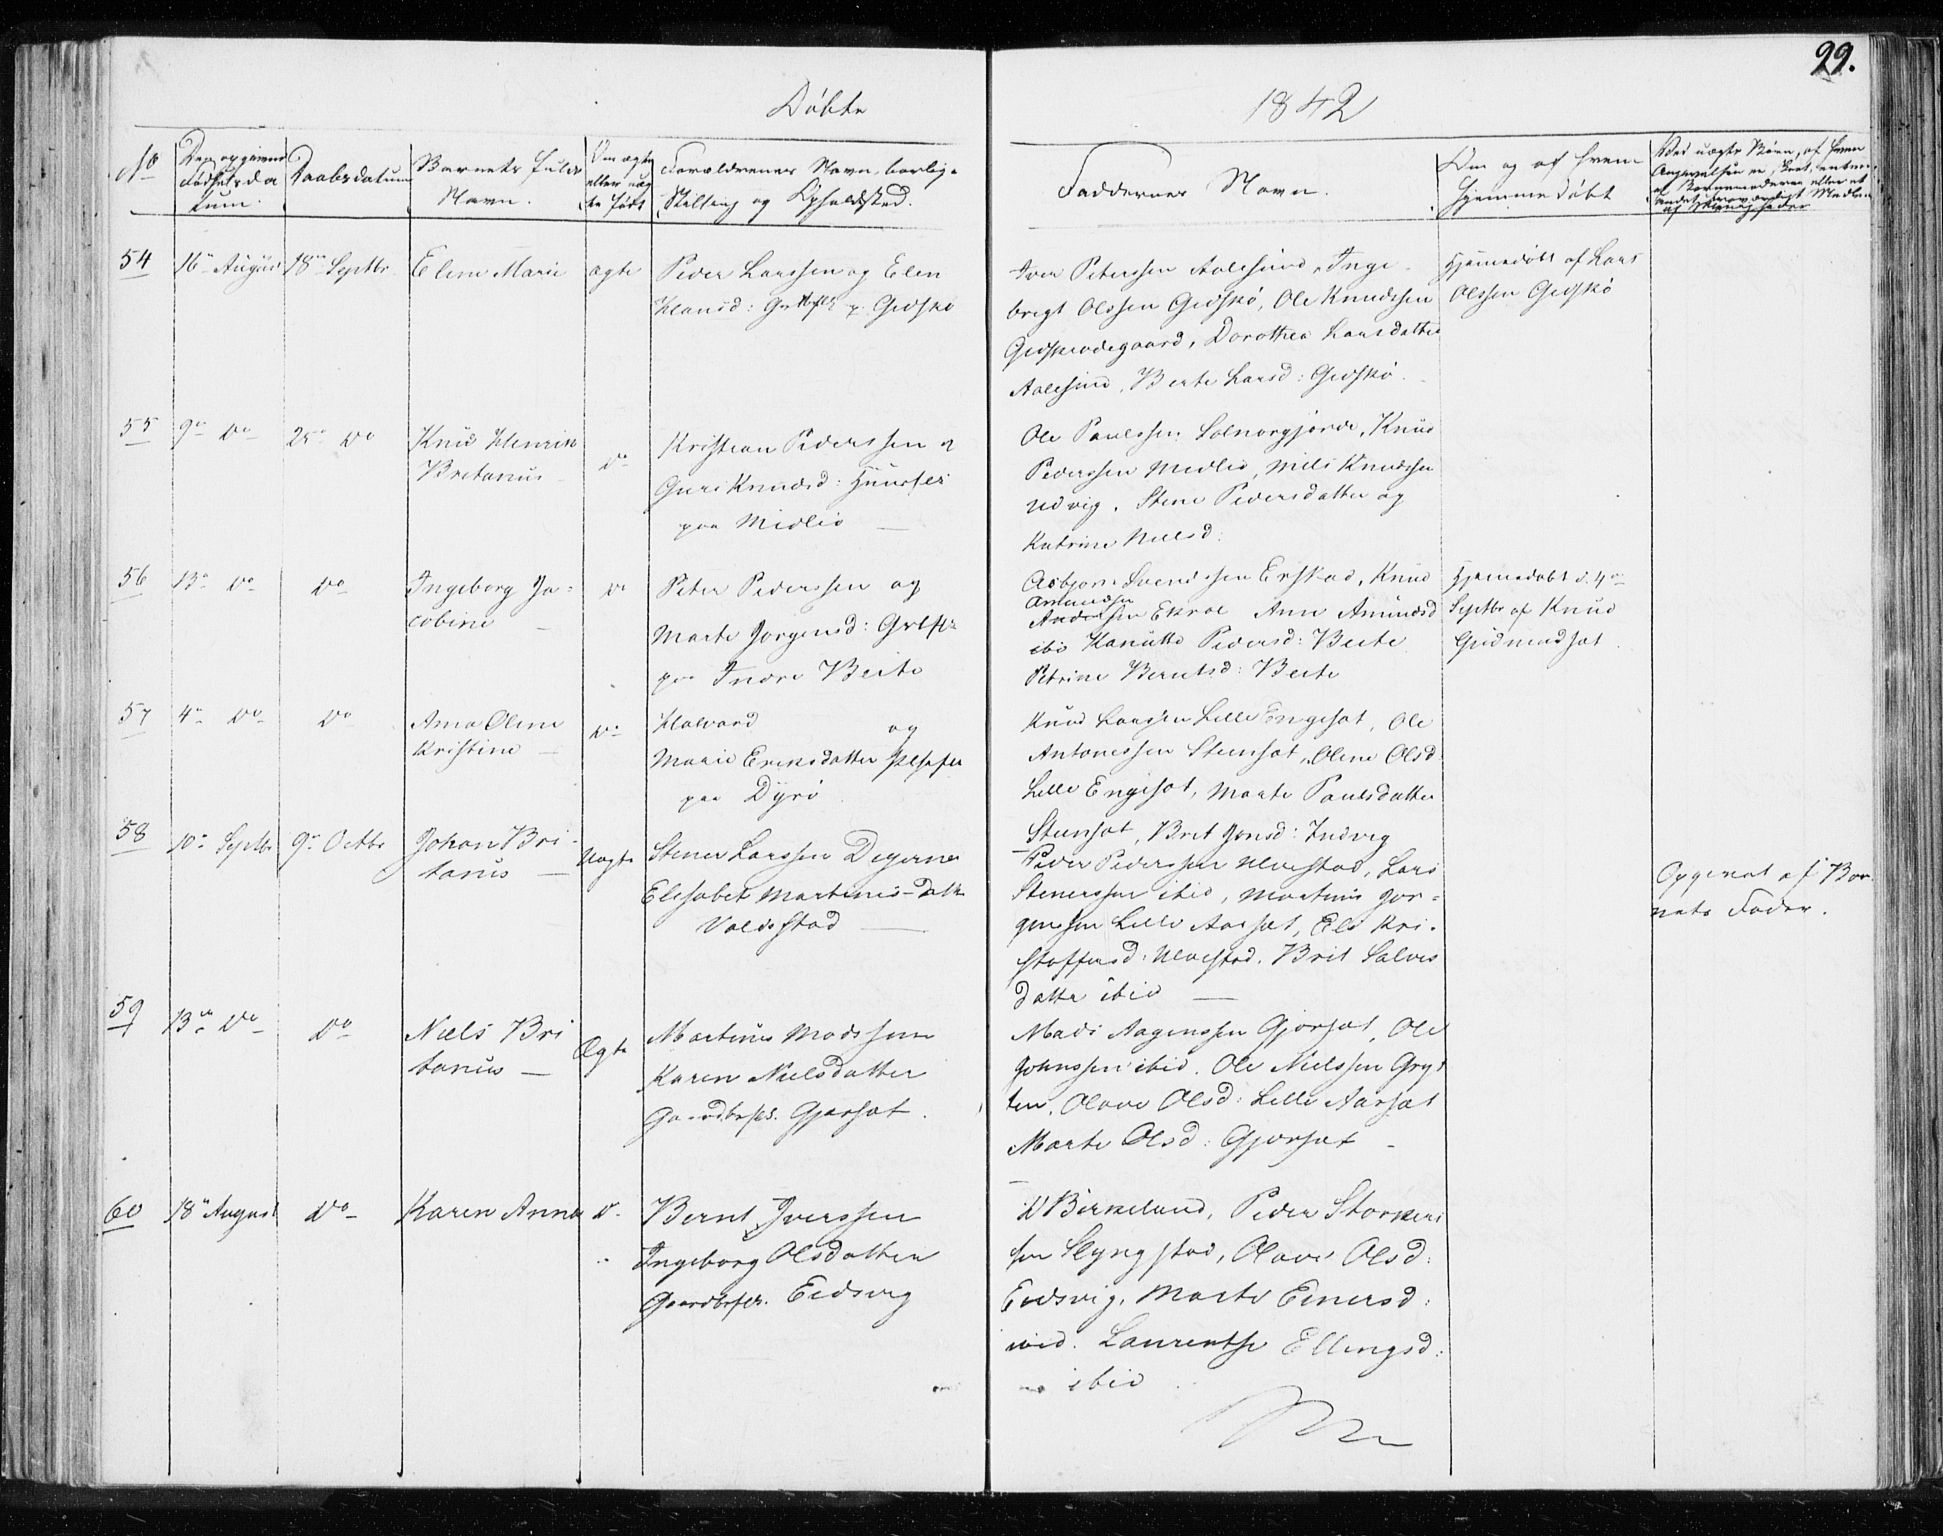 99.
Døbte
1842
No
Den opgivne Fødselsdatum.
Daabsdatum
Barnets fulde Navn.
Om ægte eller uægte født
Forældrenes Navn, borlige Stilling og Opholdssted.
Faddernes Navn.
Om og af hvem hjemmedøbt
Ved uægte Børn, af hvem Angivelsen er skeet, enten af Barnemoderen eller et andet troværdigt Medlem af Menigheden
54
16de August
18de Septbr
Elene Marie
ægte
Peder Larssen og Elen
Hansd: Grdbrflk p. Gidskø
Iver Peterssen Aalesund, Inge-
brigt Olssen Gidskø, Ole Knudssen
Gidskeødegaard, Dorothea Larsdatter
Aalesund, Berte Larsd: Gidskø.
Hjemmedøbt af Lars
Olssen Gidskø
55
9de do
25de do
Knud Henrik
Britanus
do
Kristian Pederssen og
Guri Knudsd: Huusflk
paa Midlid
Ole Paulssen Solnørgjørde, Knud
Pederssen Midlid, Nils Knudssen
Udvig, Stine Pedersdatter og
Katrine Nielsd:
56
13de do
do
Ingeborg Ja-
cobine
do
Peter Pederssen og
Marte Jørgensd: Grdflk
paa Indre Beite
Asbjørn Svendssen Erstad, Knud
Amundsen
Anderssen Ekroe Ane Amundsd
ibid Hanutte Pedersd: Beite
Petrine Berntsd: Beite
Hjemmedøbt d. 4de
Septbr af Knud
Gudmundsæt.
57
4de do
do
Ana Oline
Kristine
do
Halvard og
Marie Eriksdatter
paa Dyrø
Knud Larssen Lille Engesæt, Ole
Antonessen Steensæt, Oline Olsd
Lille Engesæt, Marte Paulsdatter
Steensæt, Brit Jonsd: Indvig
58
10de Septbr
9de Octbr
Johan Bri-
tanus
Uægte
Stener Larssen Digernes
Elisabet Martinus-Datter
Valdsstad
Peder Pederssen Ulvestad, Lars
Stenerssen ibid, Martinus Jør-
genssen Lille Aarsæt, Eli Kri-
stoffersd: Ulvestad, Brit Salves
datter ibid
Opgivet af Bar-
nets Fader.
59
13de do
do
Niels Bri
tanus
Ægte
Martinus Madssen
Karen Nielsdatter
Gaardbrflk. Gjørsæt.
Mads Aagenssen Gjørsæt, Ole
Johnssen ibid. Ole Nielssen Gry-
ten, Olave Olsd: Lille Aarsæt
Marte Olsd: Gjørsæt
60
18de August
do
Karen Anna
do
Bernt Iverssen
Ingeborg Olsdatter
Gaardbrflk. Eidsvig
Birkeland, Peder Storkers
sen Slyngstad, Olave Olsd:
Eidsvig, Marte Einersd:
ibid. Laurentse Ellingsd:
ibid